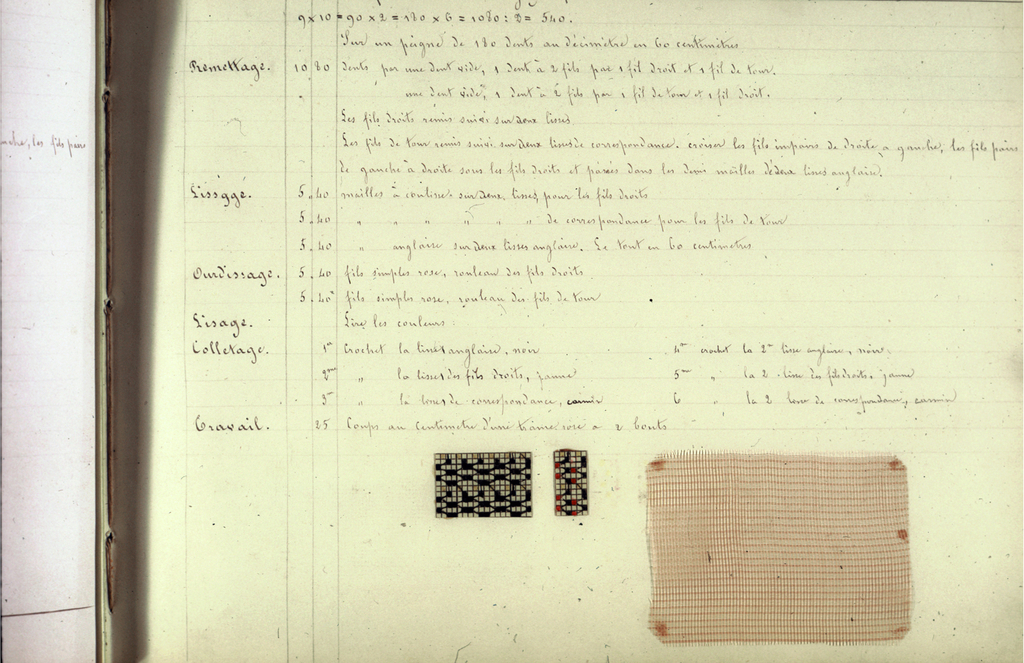 9 x 10 = 90 x 2 = 180 x 6 = 1080 : 2 = 540.
Sur un peigne de 180 dents au décimètre en 60 centimètres
Remettage. 10 80 dents par une dent vide, 1 dent à 2 fils par 1 fil droit et 1 fil de tour.
une dent vide, 1 dent à 2 fils par 1 fil de tour et 1 fil droit.
Les fils droits remis suivi sur deux lisses
Les fils de tour remis suivi sur deux lisses de correspondance. croiser les fils impairs de droite à gauche, les fils pairs
de gauche à droite sous les fils droits et passés dans les demi mailles de deux lisses anglaire.
Lisségé. 5.40 mailles à coulisse sur deux lisses pour les fils droits
5.40 " " " " " " de correspondance pour les fils de tour
5.40 " anglaire sur deux lisses anglaire. Le tout en 60 centimètres
Ourdissage. 5.40 fils simples rose, rouleau des fils droits
5.40 fils simples rose, rouleau des fils de tour
Lisage. Lire les couleurs :
Colletage. 1er Crochet la lisse anglaire, noir
2me " la lisse des fils droits, jaune
3 " la lisse de correspondance, carmin
4me crochet la 2me lisse anglaire, noir
5me " la 2 lisse des fils droits, jaune
6 " la 2 lisse de correspondance, carmin
Travail. 25 Coups au Centimètre d'une trame rose à 2 bouts
les fils pairs